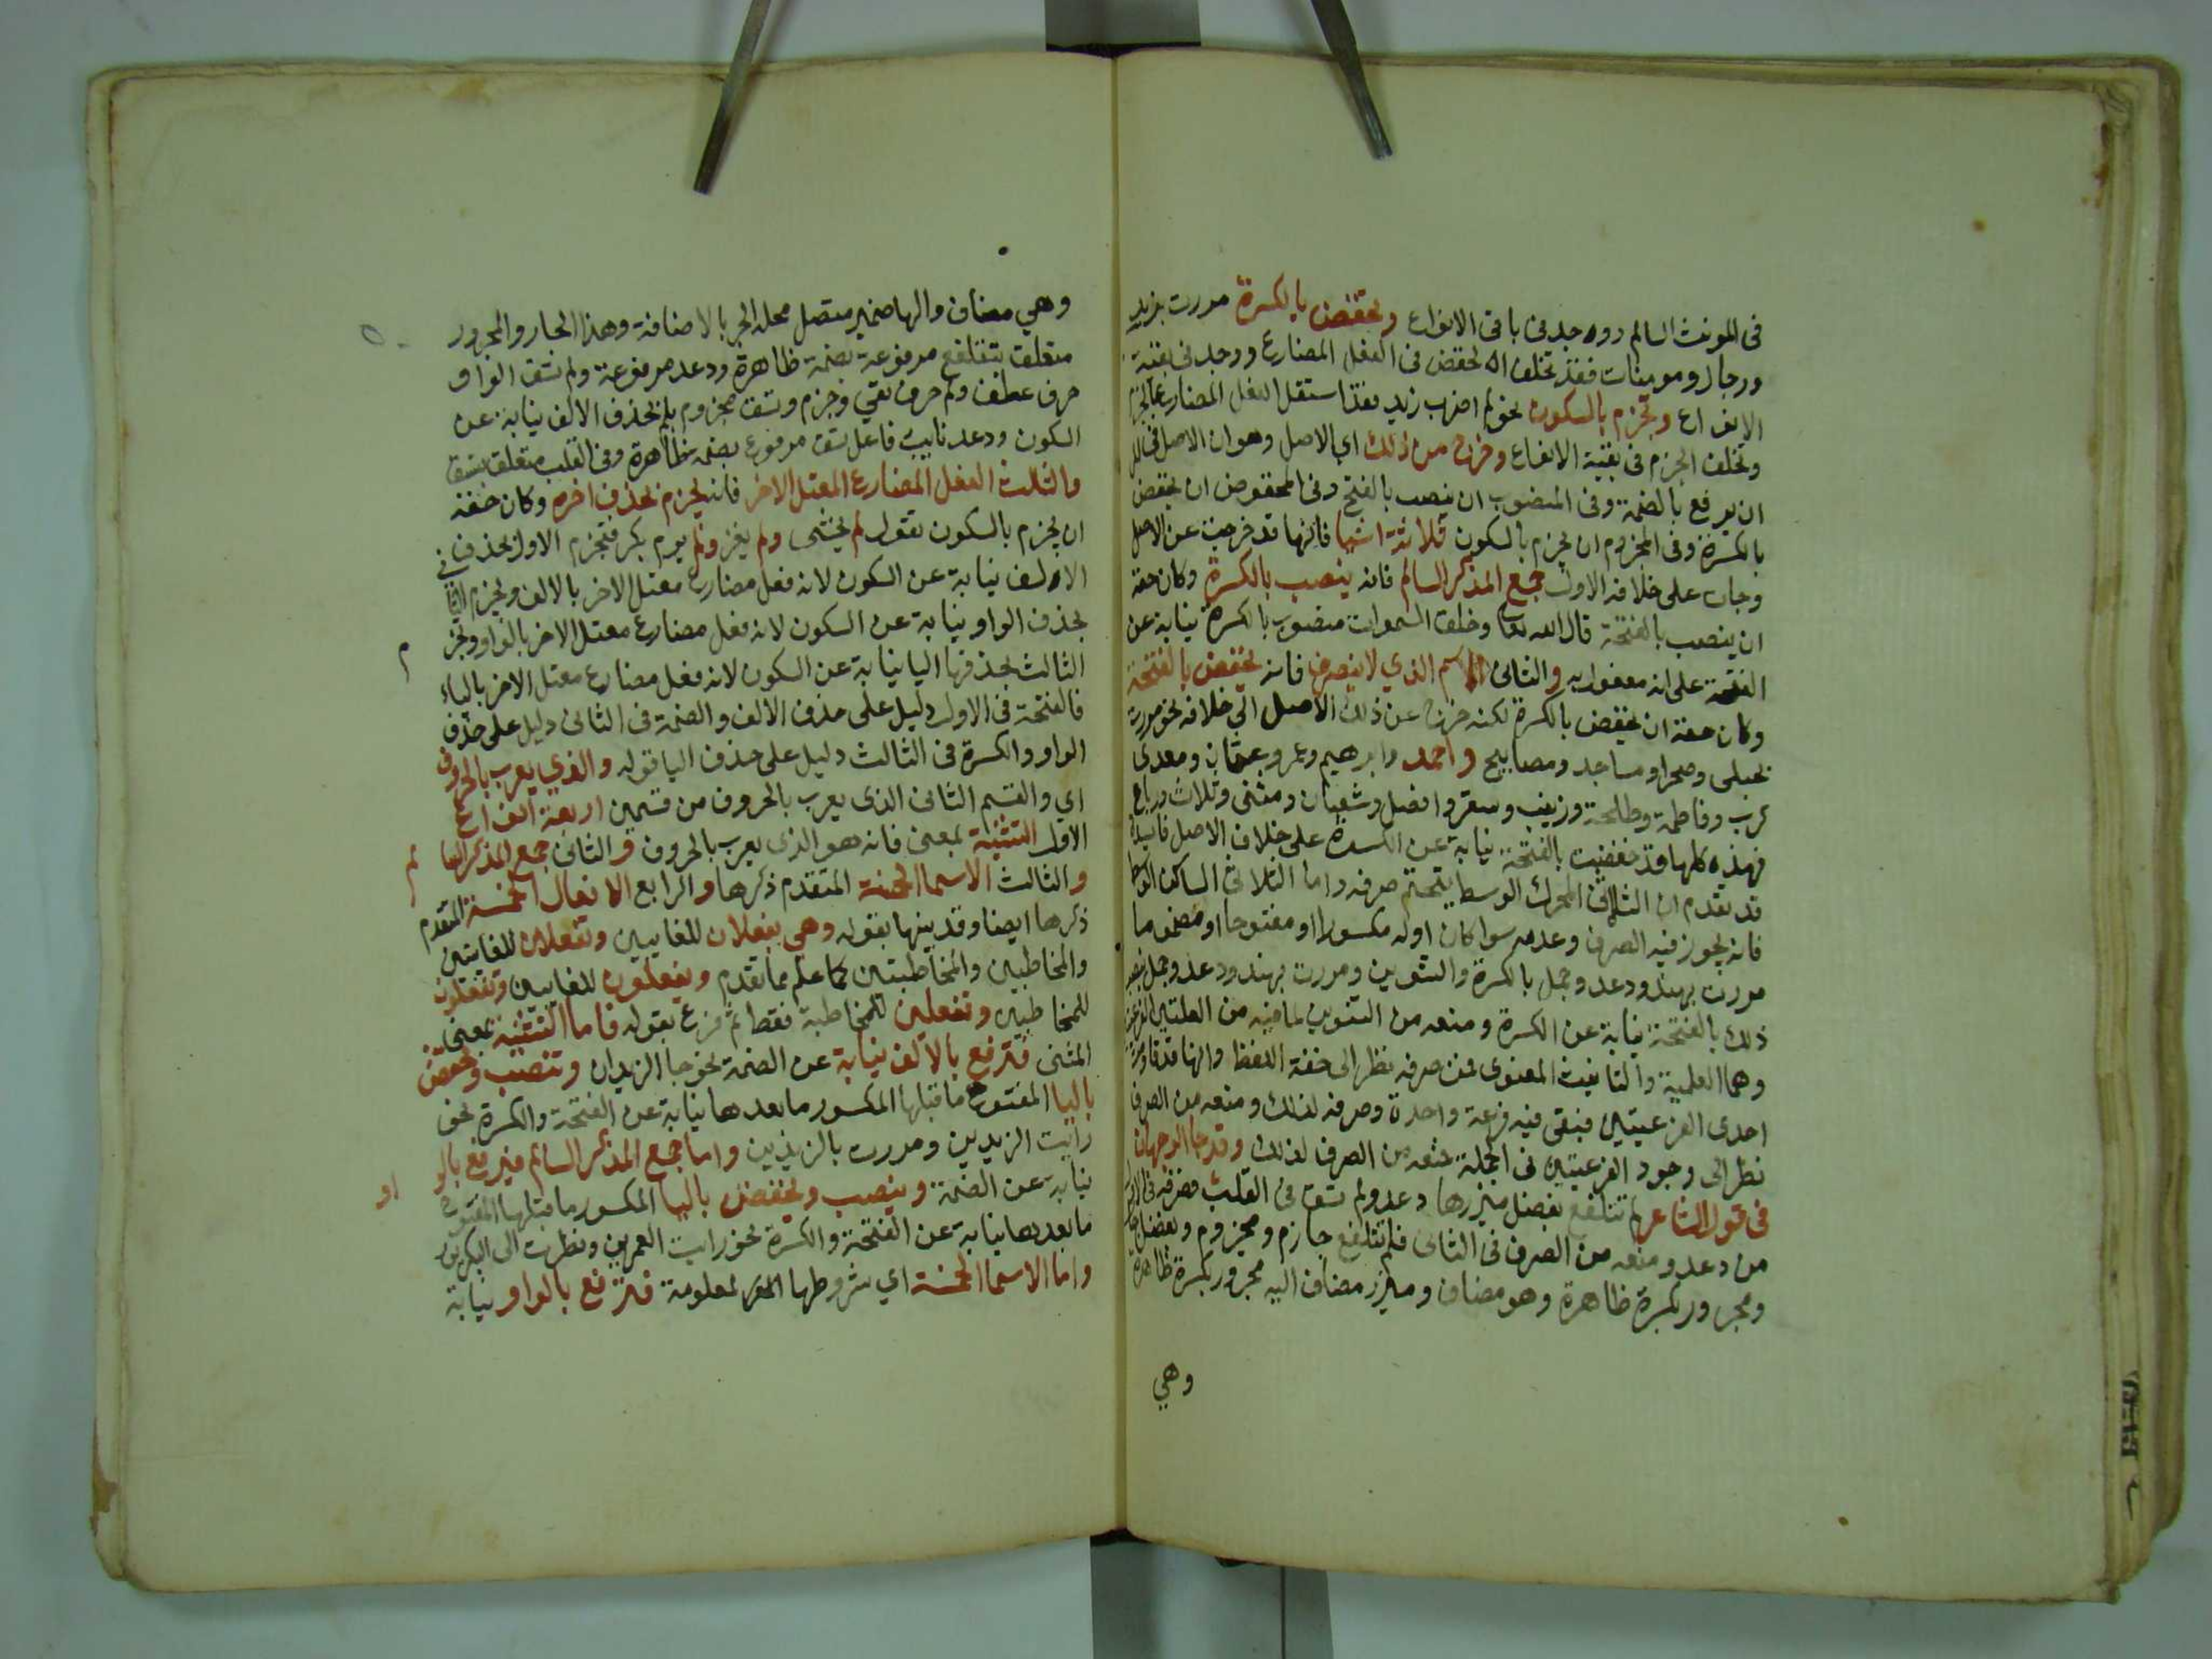 في المونث السالم ووجد في باقي الانواع وتخفض بالكسرة مررت بزيد
ورجال ومومنات فقد تخلف الخفض في الفعل المضارع ووجد في بقية
الانواع وتجزم بالسكون نحو لم اضرب زيد فقد استقل الفعل المضارع بالجزم
وتخلف الجزم في بقية الانواع وخرج من ذلك اي الاصل وهو ان الاصل في
ان يرفع بالضمة وفي المنصوب ان ينصب بالفتح وفي المخفوض ان يخفض
بالكسرة وفي المجزوم ان يجزم بالسكون ثلاثة اشيا فانها قد خرجت عن الاصل
وجات على خلافه الاول جمع المذكر السالم فانه ينصب بالكسرة وكان حقه
ان ينصب بالفتحة قال الله تعالى وخلق السموات منصوب بالكسرة نيابة عن
الفتحة على انه مفعول به والثاني الاسم الذي لا ينصرف فانه يخفض بالفتحة
وكان حقه ان يخفض بالكسرة لكنه خرج عن ذلك الاصل الي خلافه نحو مررت
بحبلى وصحرا ومساجد ومصابيح واحمد وابرهيم وعمر وعثمان ومعدي
كرب وفاطمة وطلحة وزينب وسقر وافضل وشعبان ومثنى وثلاث ورباع
فهذه كلها قد خفضت بالفتحة نيابة عن الكسرة على خلاف الاصل فايدة
قد تقدم ان الثلاثي المحرك الوسط يتحتم صرفه واما الثلاثي الساكن الوسط
فانه يجوز فيه الصرف وعدمه سوا كان اوله مكسورا او مفتوحا او مضموما
مررت بهند ودعد وجمل بالكسرة والتنوين ومررت بهند ودعد وجمل بغير
ذلك بالفتحة نيابة عن الكسرة ومنعه من التنوين لما فيه من العلتين الفرعيتين
وهما العلمية والتانيث المعنوي فمن صرفه نظر الى خفة اللفظ وانها قد قاومت
احدى الفرعيتين فبقى فيه فرعة واحدة وصرفه لذلك ومنعه من الصرف
نظر الى وجود الفرعيتين في الجملة منعه من الصرف لذلك وقد جا الوجهان
في قول الشاعر لم تتلفع بفضل ميزرها دعد ولم تسق في القلب فصرفه في الاول
من دعد ومنعه من الصرف في الثاني فلم تتلفع جازم ومجزوم وبفضل جار
ومجرور بكسرة ظاهرة وهو مضاف وميزر مضاف اليه مجرور بكسرة ظاهرة
وهي
وهي مضاف والها ضمير متصل محله الجر بالاضافة وهذا الجار والمجرور
متعلق بتتلفع مرفوعة بضمة ظاهرة ودعد مرفوعة ولم تسق الواو
حرف عطف ولم حرف نفي وجزم وتسق مجزوم بلم بحذف الالف نيابة عن
السكون ودعد نايب فاعل تسق مرفوع بضمة ظاهرة وفي القلب متعلق بتسق
والثالث الفعل المضارع المعتل الاخر فانه يجزم بحذف اخره وكان حقه
ان يجزم بالسكون تقول لم يخشى ولم يغز ولم يرم بكر فتجزم الاول بحذف
الالف نيابة عن السكون لانه فعل مضارع معتل الاخر بالالف ويجزم الثاني
بحذف الواو نيابة عن السكون لانه فعل مضارع معتل الاخر بالواو ويجزم
الثالث بحذفها اليا نيابة عن السكون لانه فعل مضارع معتل الاخر بالياء
فالفتحة في الاول دليل على حذف الالف والضمة في الثاني دليل على حذف
الواو والكسرة في الثالث دليل على حذف اليا قوله والذي يعرب بالحروف
اي والقسم الثاني الذي يعرب بالحروف من قسمين اربعة انواع
الاول التثنية بمعنى فانه هو الذي يعرب بالحروف والثاني جمع المذكر السالم
والثالث الاسما الخمسة المتقدم ذكرها والرابع الافعال الخمسة المتقدم
ذكرها ايضا وقد بينها بقوله وهي يفعلان للغايبين وتفعلان للغايبتين
والمخاطبين والمخاطبتين كما علم مما تقدم ويفعلون للغايبين وتفعلون
للمخاطبين وتفعلين للمخاطبة فقط ثم فرع بقوله فاما التثنية بمعنى
المثنى فترفع بالالف نيابة عن الضمة نحو جا الزيدان وتنصب وتخفض
باليا المفتوح ما قبلها المكسور ما بعدها نيابة عن الفتحة والكسرة نحو
رايت الزيدين ومررت بالزيدين واما جمع المذكر السالم فيرفع بالواو
نيابة عن الضمة وينصب ويخفض باليا المكسور ما قبلها المفتوح
ما بعدها نيابة عن الفتحة والكسرة نحو رايت العمرين ونظرت الى البكرين
واما الاسما الخمسة اي بشروطها المعلومة فترفع بالواو نيابة